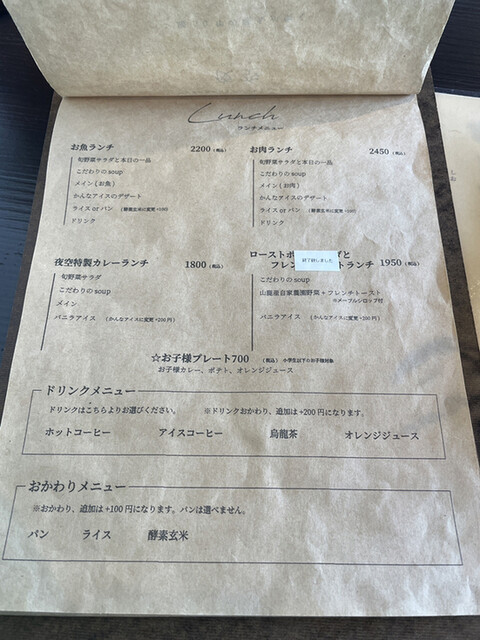 Lunch
ランチメニュー
お魚ランチ 2200 (税込)
旬野菜サラダと本日の一品
こだわりのsoup
メイン (お魚)
かんなアイスのデザート
ライス or パン (酵素玄米に変更+100)
ドリンク
お肉ランチ 2450 (税込)
旬野菜サラダと本日の一品
こだわりのsoup
メイン (お肉)
かんなアイスのデザート
ライス or パン (酵素玄米に変更+100)
ドリンク
夜空特製カレーランチ 1800 (税込)
旬野菜サラダ
こだわりのsoup
メイン
バニラアイス (かんなアイスに変更+200円)
ローストポ ダと
終了致しました
フレン トランチ 1950 (税込)
こだわりのsoup
山麓産自家農園野菜+フレンチトースト
※メープルシロップ付
バニラアイス (かんなアイスに変更+200円)
☆お子様プレート700 (税込) 小学生以下のお子様対象
お子様カレー、ポテト、オレンジジュース
ドリンクメニュー
ドリンクはこちらよりお選びください。 ※ドリンクおかわり、追加は+200円になります。
ホットコーヒー アイスコーヒー 烏龍茶 オレンジジュース
おかわりメニュー
※おかわり、追加は+100円になります。パンは選べません。
パン ライス 酵素玄米